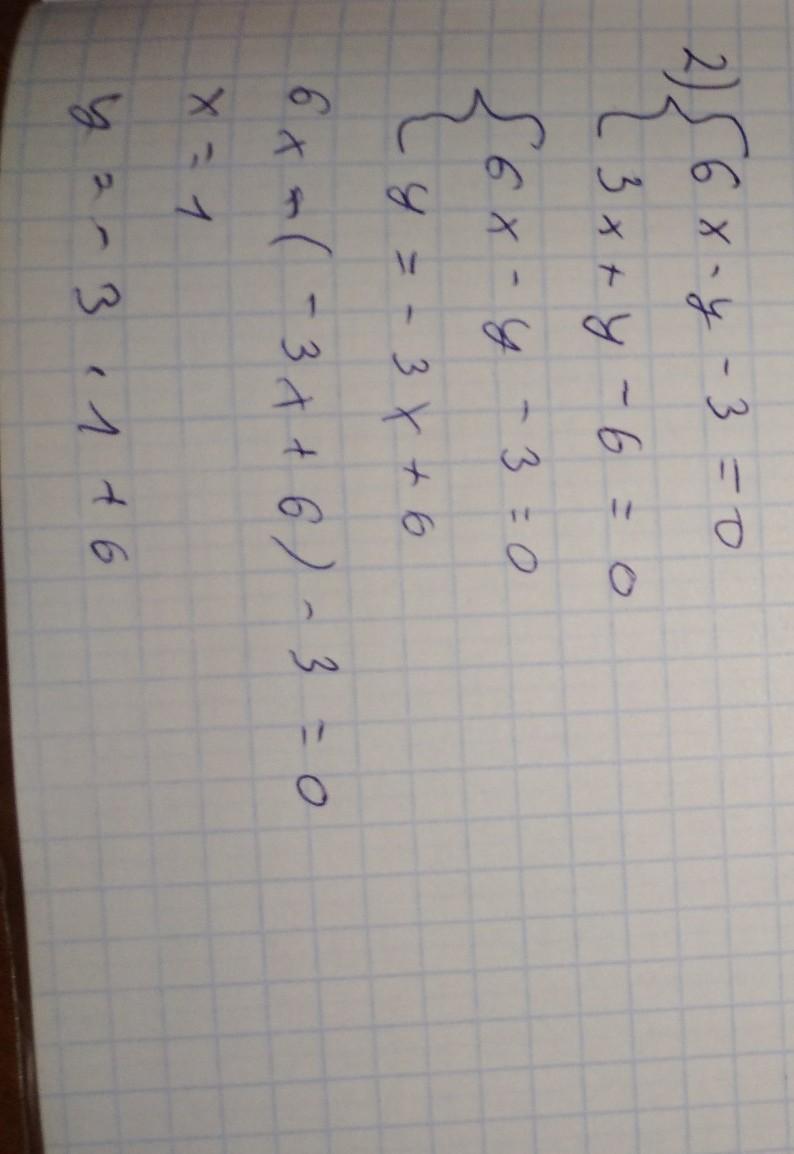 2) { 6x - y - 3 = 0
{ 3x + y - 6 = 0
{ 6x - y - 3 = 0
{ y = -3x + 6
6x - (-3x + 6) - 3 = 0
x = 1
y = -3 · 1 + 6